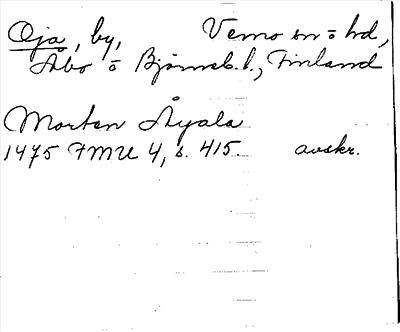 Oja, by, Vemo sn o hd,
Åbo o Björneb. l., Finland
Morten Åyala
1475 FMU 4, s. 415. avskr.